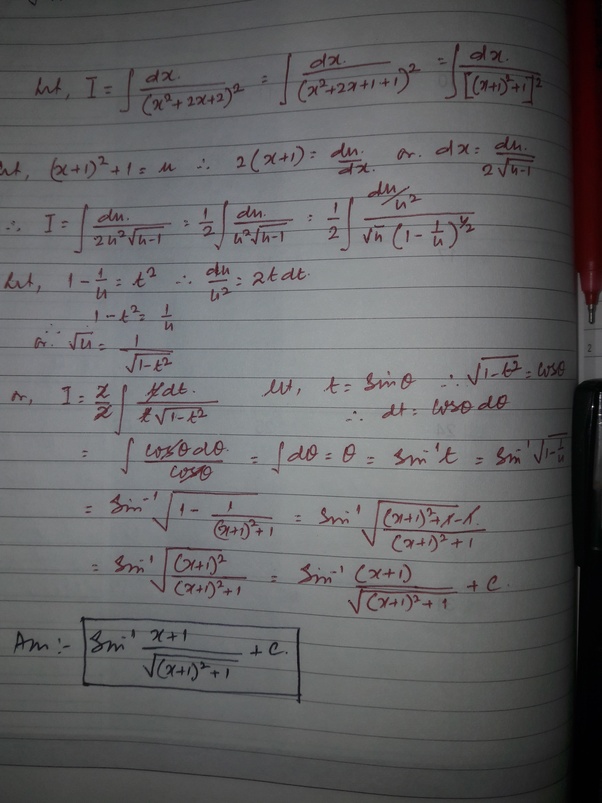 Let, I = ∫ dx. / (x²+2x+2)² = ∫ dx. / (x²+2x+1+1)² = ∫ dx. / [(x+1)²+1]²
Let, (x+1)²+1 = u ∴ 2(x+1) = du/dx. or. dx = du. / 2√u-1
∴ I = ∫ du. / 2u²√u-1 = 1/2 ∫ du. / u²√u-1 = 1/2 ∫ du/u² / √u (1 - 1/u)^1/2
Let, 1 - 1/u = t² ∴ du/u² = 2t dt.
∴ 1-t² = 1/u
or. √u = 1/√1-t²
or, I = 2/2 ∫ t dt. / t√1-t² Let, t = Sinθ ∴ √1-t² = cosθ
∴ dt = cosθ dθ
= ∫ cosθ dθ / cosθ = ∫ dθ = θ = Sin⁻¹ t = Sin⁻¹ √1-1/u
= Sin⁻¹ √1 - 1/(x+1)²+1 = Sin⁻¹ √(x+1)²+1-1 / (x+1)²+1
= Sin⁻¹ √(x+1)² / (x+1)²+1 = Sin⁻¹ (x+1) / √(x+1)²+1 + C.
Ans :- Sin⁻¹ x+1 / √(x+1)²+1 + C.
2